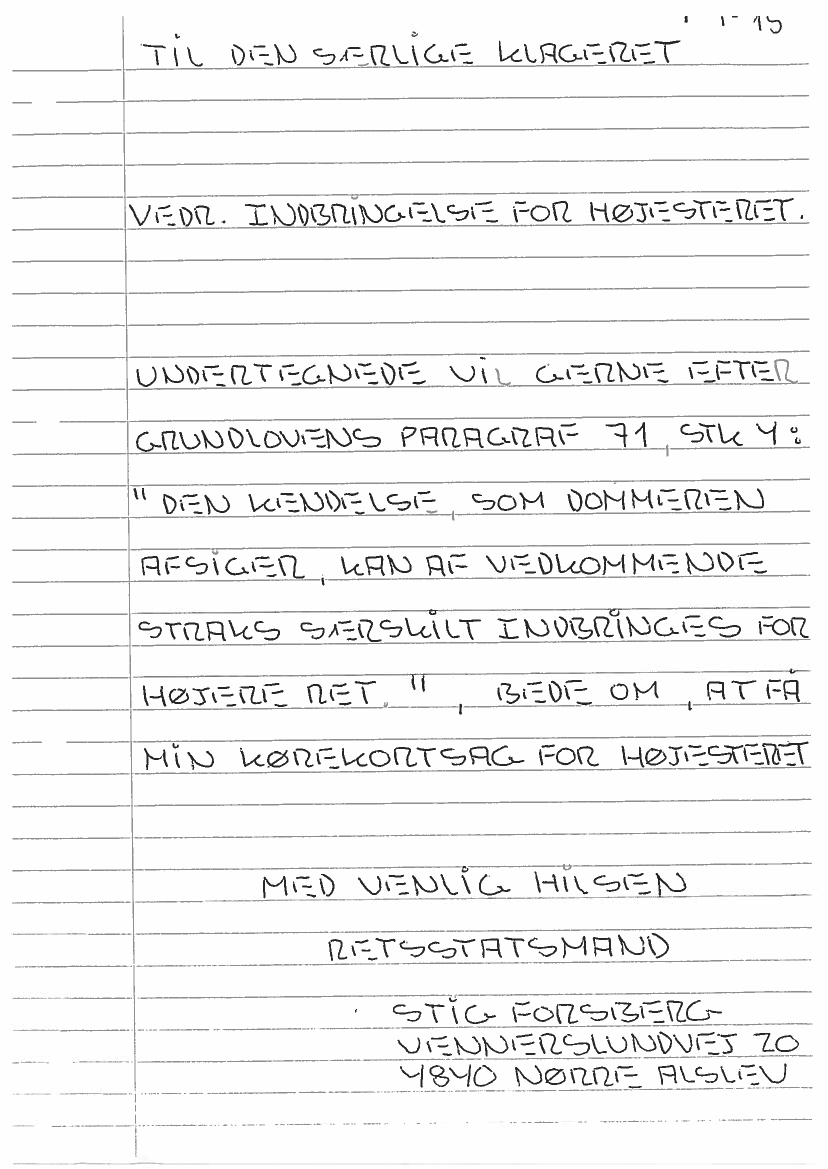 TIL DEN SÆRLIGE KLAGERET
VEDR. INDBRINGELSE FOR HØJESTERET.
UNDERTEGNEDE VIL GERNE EFTER
GRUNDLOVENS PARAGRAF 71, STK 4:
"DEN KENDELSE, SOM DOMMEREN
AFSIGER, KAN AF VEDKOMMENDE
STRAKS SÆRSKILT INDBRINGES FOR
HØJERE RET.", BEDE OM, AT FÅ
MIN KØREKORTSAG FOR HØJESTERET
MED VENLIG HILSEN
RETSSTATSMAND
STIG FORSBERG
VENNERSLUNDVEJ 20
4840 NØRRE ALSLEV